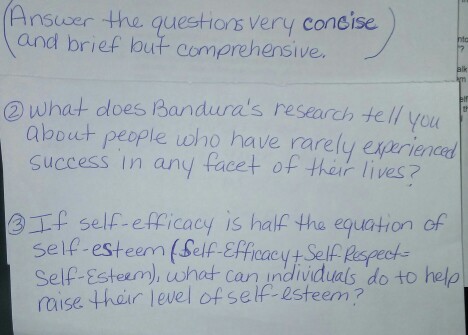 (Answer the questions very concise
and brief but comprehensive.)
② What does Bandura's research tell you
about people who have rarely experienced
success in any facet of their lives?
③ If self-efficacy is half the equation of
self-esteem (Self-Efficacy + Self-Respect =
Self-Esteem), what can individuals do to help
raise their level of self-esteem?